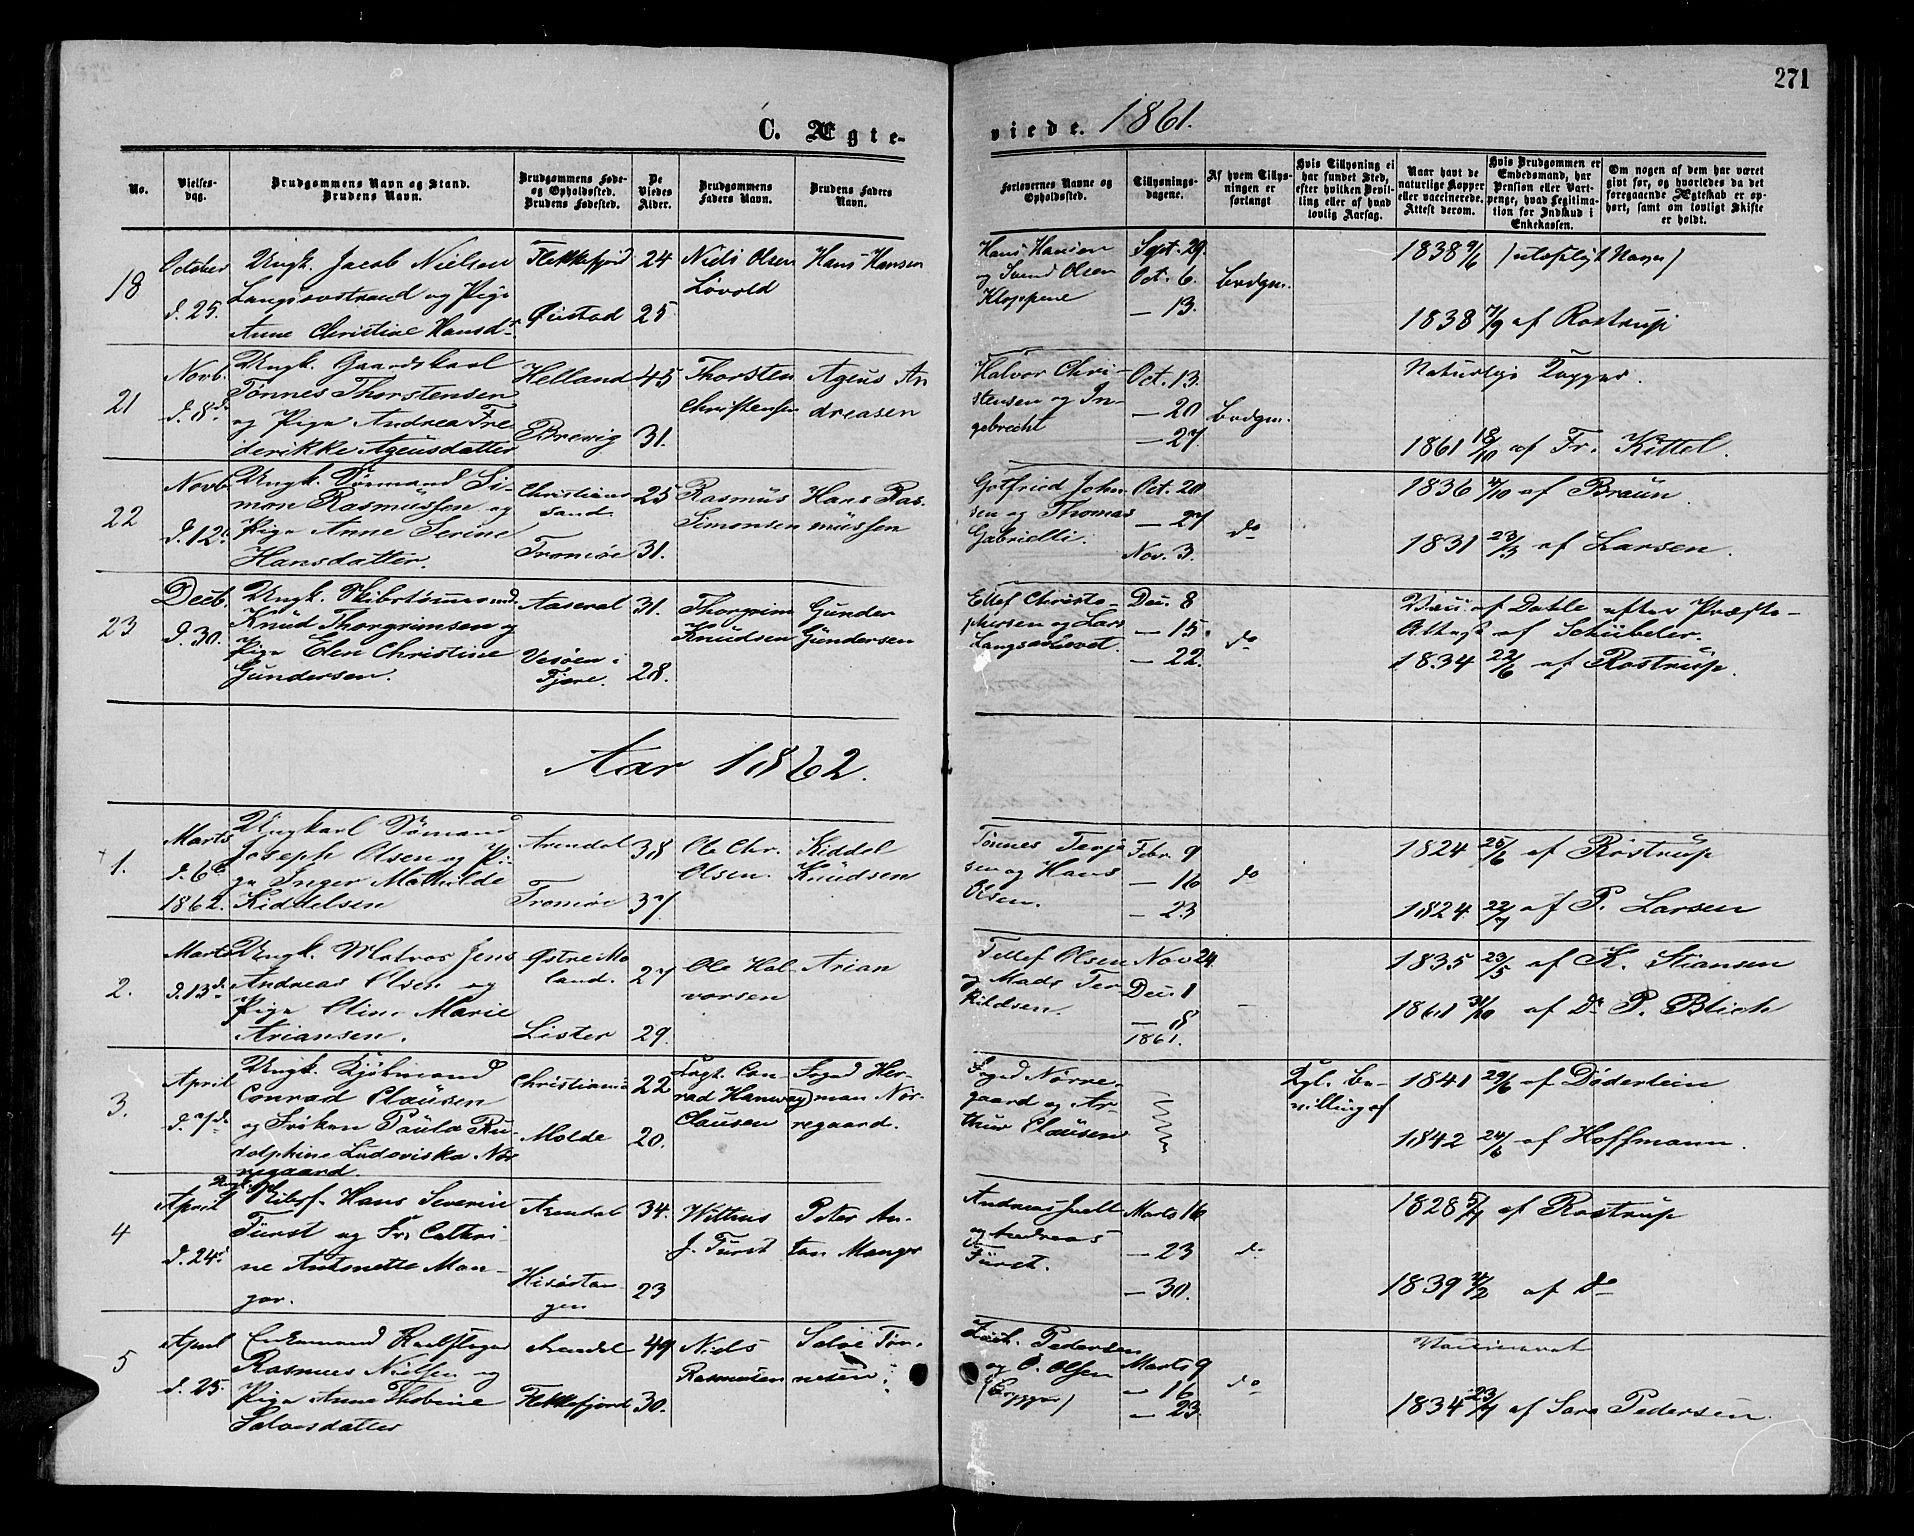 271
C. Ægte-
viede. 1861.
No.
Vielses-
dag.
Brudgommens Navn og Stand.
Brudens Navn.
Brudgommens Føde-
og Opholdssted.
Brudens Fødested.
De
Viedes
Alder.
Brudgommens
Faders Navn.
Brudens Faders
Navn.
Forlovernes Navne og
Opholdssted.
Tillysnings-
dagene.
Af hvem Tillys-
ningen er
forlangt
Hvis Tillysning ei
har fundet Sted,
efter hvilken Bevil-
ling eller af hvad
lovlig Aarsag.
Naar havt de
naturlige Kopper
eller vaccinerede.
Attest derom.
Hvis Brudgommen er
Embedsmand, har
Pension eller Vart-
penge, hvad Legitima-
tion for Indskud i
Enkekassen.
Om nogen af dem har været
givt før, og hvorledes da det
foregaaende Ægteskab er op-
hørt, samt om lovligt Skifte
er holdt.
18
October
d. 25.
Ungk. Jacob Nielsen
og Pige
Anne Christine Hansdtr
Flekkefjord
Øiestad
24
25
Niels Olsen
Løvold
Hans Hansen
Hans Hansen
og Svend Olsen
Kloppene
Sept. 29.
Oct. 6.
— 13.
Brdgm.
1838 9/6
1838 7/9 af Rostrup
21
Novb.
d. 8de
Ungk. Gaardskarl
Tønnes Thorstensen
og Pige Andrea Fre
derikke Ageusdatter
Helland
Brevig
45
31.
Thorsten
Christensen
Ageus An
dreasen
Halvor Chri-
stensen og In-
gebrecht
Oct. 13.
— 20
— 27
Brdgm.
Naturlige Kopper.
1861 18/10 af Fr. Kittel.
22
Novb
d. 12te
Ungk. Sømand Si-
mon Rasmussen og
Pige Anne Serine
Hansdatter.
Christian
sand.
Tromøe
25
31.
Rasmus
Simonsen
Hans Ras-
mussen
Gotfried John
sen og Thomas
Gabrielli.
Oct. 20
— 27
Nov. 3.
do
1836 4/10 af Braun.
1831 23/3 af Larsen.
23
Decb.
d. 30.
Ungk. Skibstømmermd.
Knud Thorgrimsen og
Pige Elen Christine
Gundersen.
Aaseral
Vesøen i
Fjære.
31.
28.
Thorgrim
Knudsen
Gunder
Gundersen
Ellef Christo-
phersen og Lars
Langsævevet
Dec. 8
— 15.
— 22.
do
Vac. af Dahle efter Præste-
Attest af Schübeler.
1834 22/6 af Rostrup.
Aar 1862.
1.
Marts
d. 6te
1862.
Ungkarl Sømand
Joseph Olsen og Pi-
ge Inger Mathilde
Kiddelsen
Arendal
Tromøe
38
37
Ole Chr.
Olsen.
Kiddel
Knudsen
Tønnes Terje
sen og Hans
Olsen.
Febr. 9
— 16
— 23
do
1824 25/6 af Rostrup
1824 22/7 af P. Larsen
2.
Marts
d. 13de
Ungk. Matros Jens
Andreas Olsen og
Pige Oline Marie
Ariansen.
Østre Mo
land.
Lister
27
29.
Ole Hal-
vorsen
Arian
Tellef Olsen
og Mads Ter
kildsen.
Nov 24.
Dec. 1
— 8
1861.
–
1835 23/5 af K. Stiansen
1861 31/10 af Dr P. Blich
3.
April
d. 7de
Ungk. Kjøbmand
Conrad Clausen
og Frøken Paula Ru-
dolphine Ludoviska Nør
regaard.
Christiania
Molde
22
20.
Fogt. Con-
rad Hanway
Clausen
Foged Her-
man Nør-
regaard.
Foged Nørre-
gaard og Ar-
thur Clausen
Kgl. Be-
villing af
1841 29/6 af Døderlein
1842 24/6 af Hoffmann.
4
April
d. 24de
Hans Severin
Fürst og Fr. Cathri-
ne Antonette Man-
ger.
Arendal
Hisøstan
gen
34.
23
Wilthus
J. Fürst
Peter An-
ton Manger
Andreas Juell
og Andreas
Fürst.
Marts 16
— 23
— 30.
do
1828 5/7 af Rostrup
1839 4/2 af Do
5
April
d. 25.
Enkemand
Rasmus Nielsen og
Pige Anne Thobine
Salvesdatter
Arendal
Flekkefjord
49
30.
Niels
Rasmusen
Salve Tøn-
nesen
Zach. Pedersen
og O. Olsen
Marts 9
— 16
— 23.
do
Vaccineret
1834 23/7 af Sara Pedersen.